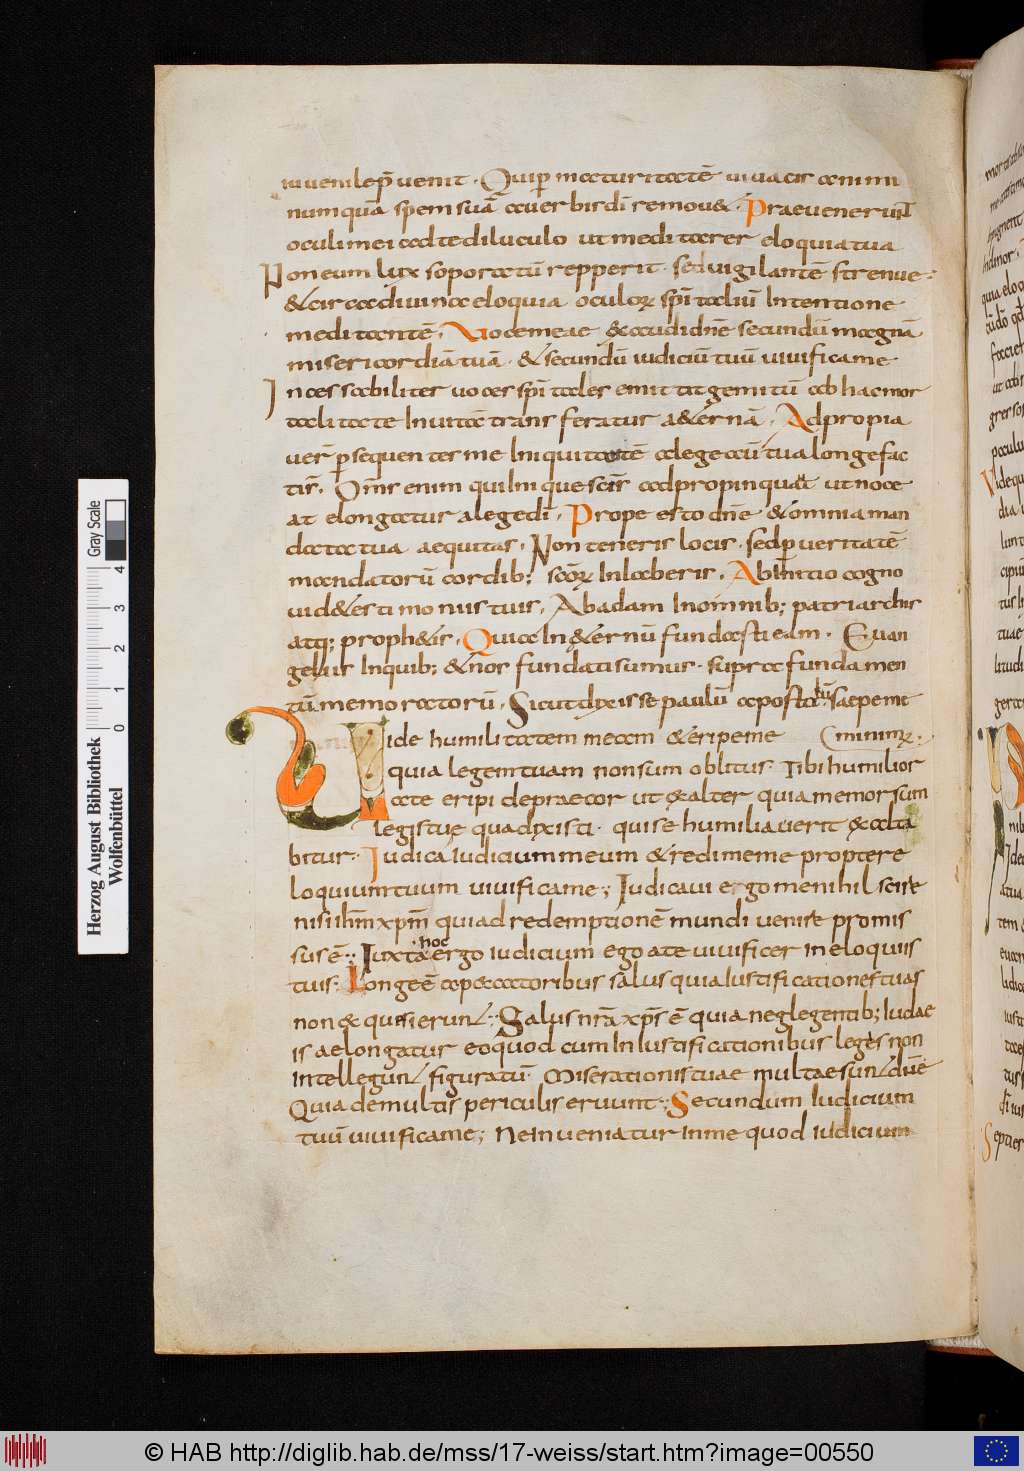 iuvenilep̄ venit · Quip̄ mactaritatē vivacis animi
numquā spem suā averbis dī removet · Praevenerunt
oculi mei ad te diluculo ut meditarer eloquia tua
Non eum lux soporatū repperit · sed vigilantē strenue
& circa divina eloquia oculoꝝ spī taliū Intentione
meditantē · Vocem eae & audi dn̄e secundū magnā
misericordiā tuā · & secundū iudiciū tuū vivifica me
In aessabiliter voces spī tales emittit gemitū ab hac mor
talitate In vitā transferatur a&ernā · Adpropia
ver̄ p̄sequentes me Iniquitatē a lege aū tua longe fac
tis̄ · Om̄s enim qui Inique scis̄ adpropinquat ut noce
at elongatur a lege dī · Prope esto dn̄e & omnia man
data tua aequitas · Non teneris locis · sed p̄ veritatē
mandatorū cordib; scōꝝ Inlaberis · Ab Initio cogno
vi de testimoniis tuis · Ab adam In omnib; patriarchis
atq; prophetis · Quia In &ernū fundasti eam · Euan
gelius Inquib; & nos fundati sumus · supra fundamen
tū memoratorū · Sicut dixisse paulū apostolū saepe me
Vide humilitatem meam & eripe me (minimꝝ ·
quia legem tuam non sum oblitus · Tibi humilior
ate eripi deprecor ut exalter quia memor sum
legis tue qua dixisti · qui se humiliaverit exalta
bitur · Iudica iudicium meum & redime me propter e
loquium tuum vivifica me ; Iudicavi ergo me nihil scire
nisi ihm̄ xpm̄ qui ad redemptionē mundi venire promis
sus ē : Iuxta hoc ergo iudicium ego ate vivificer in eloquiis
tuis : Longe ē a peccatoribus salus quia Iustificationes tuas
non exquisierunt : Salus nr̄a xp̄s ē quia neglegentib; Iudae
is a elongatur eo quod cum In Iustificationibus leges non
intellegunt figuratū · Miserationis tuae multae sunt dn̄e
Quia de multis periculis eruunt : Secundum Iudicium
tuū vivifica me ; Ne inveniatur in me quod iudicium
Gray Scale
0 1 2 3 4
Herzog August Bibliothek
Wolfenbüttel
© HAB http://diglib.hab.de/mss/17-weiss/start.htm?image=00550